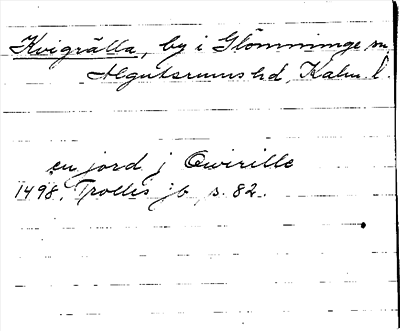 Kvigrälla, by i Glömminge sn,
Algutsrums hd, Kalm. l.
en jord j Qwirille
1498. Trolles jb, s. 82.